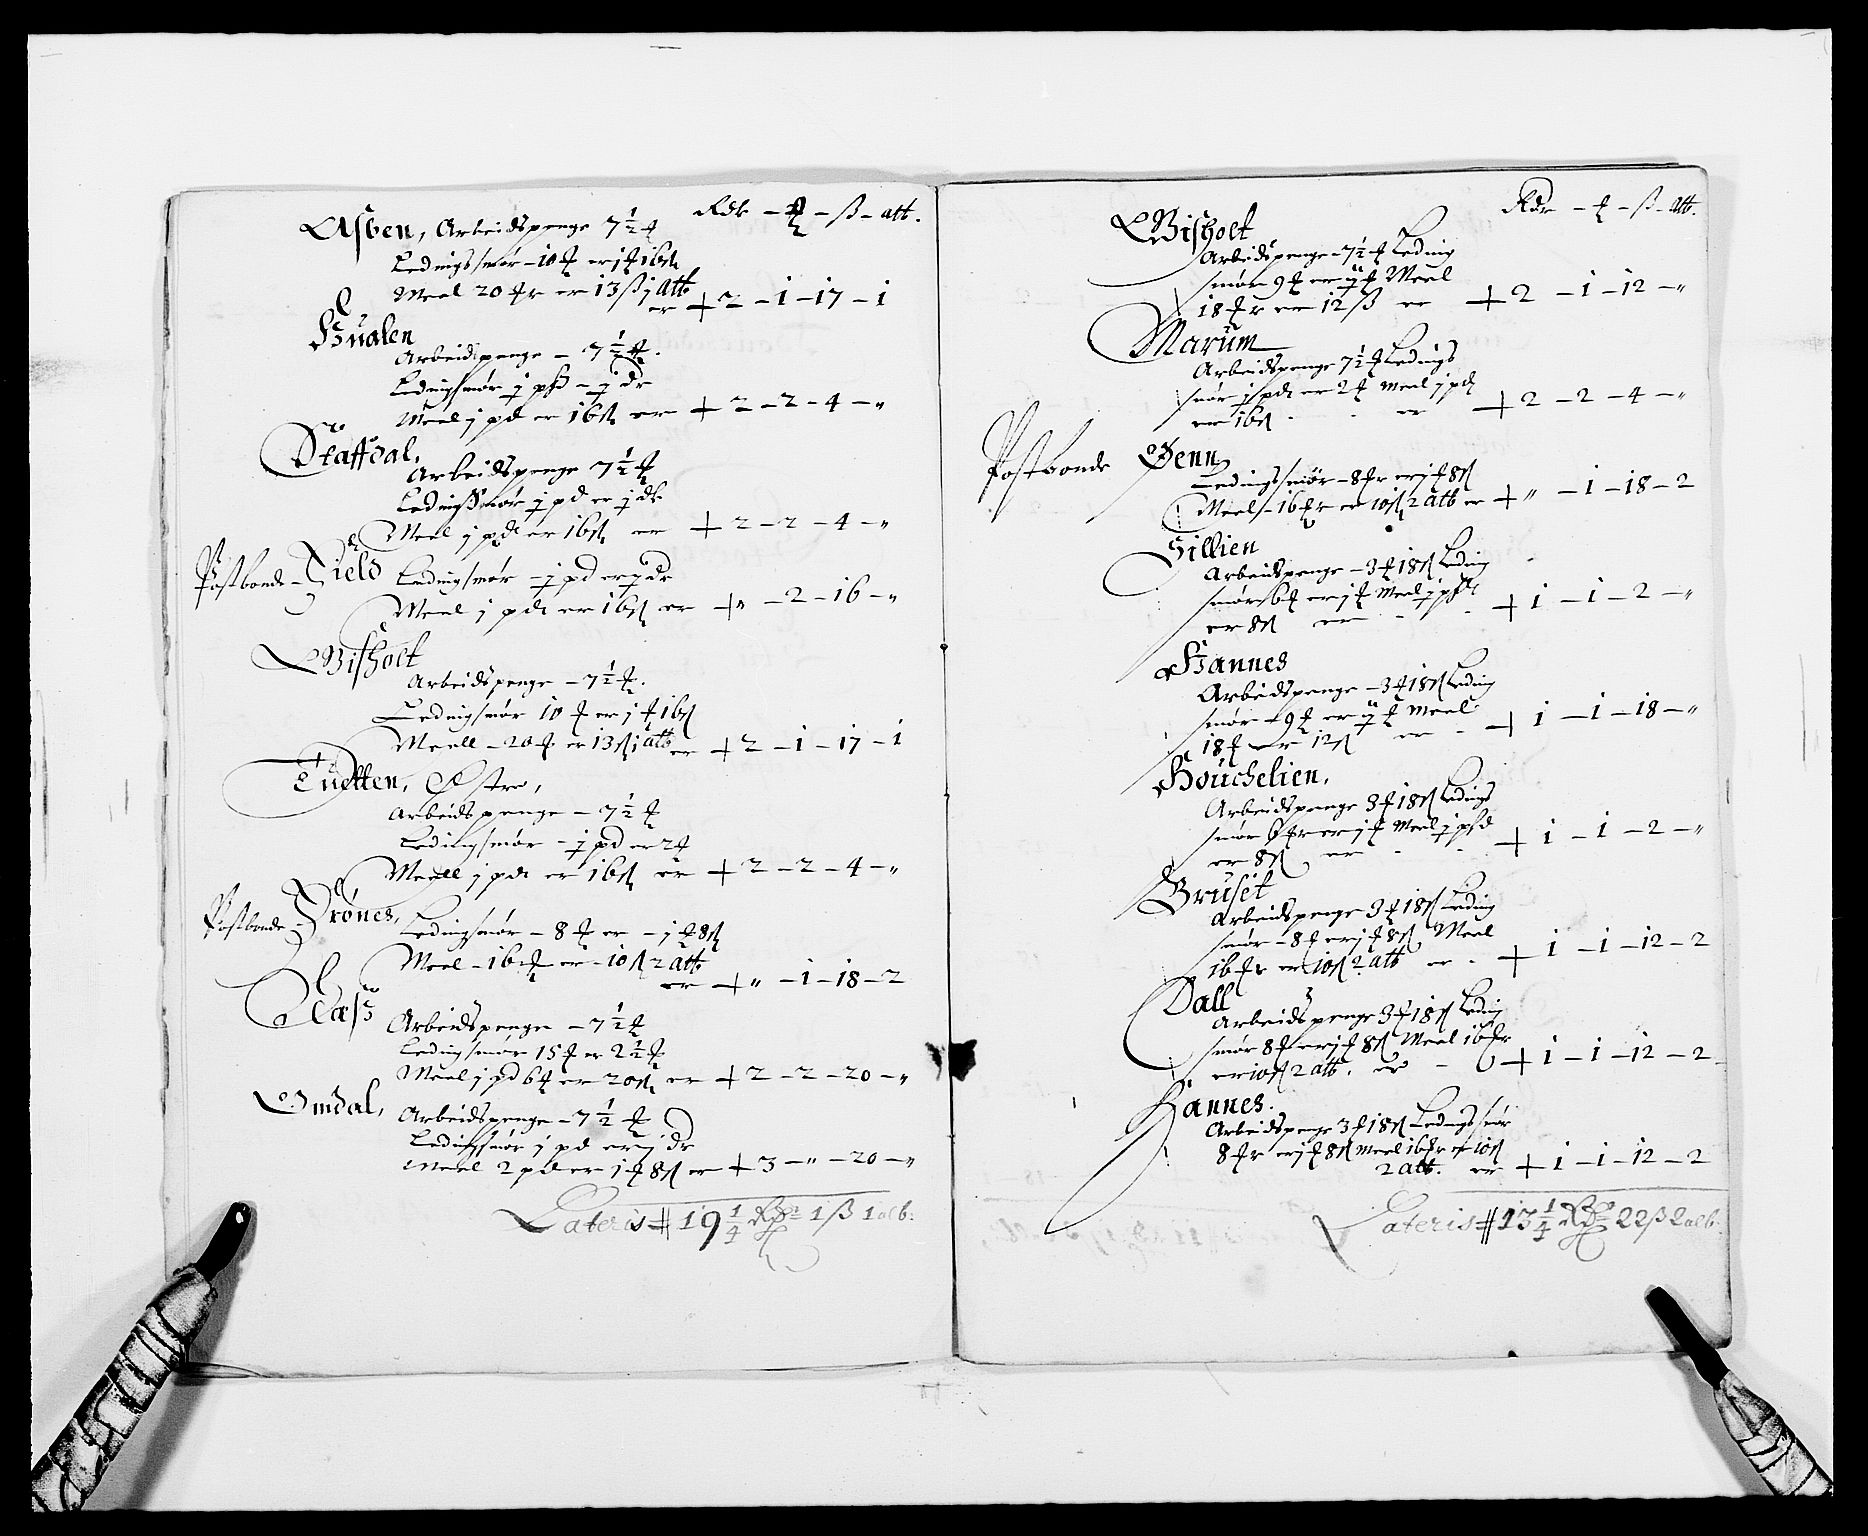 Rdr – ƺ – ß – alb.
Asben, Arbeidspenge 7½ ƺ
Ledingssmør – 10 ƺ er j ƺ 16ß
Meel 20 ƺr er 13 ß j alb
er + 2 – 1 – 17 – 1
Hualen
Arbeidspenge – 7½ ƺ.
Ledingsmør j pd – j dr
Meel j pd er 16ß er + 2 – 2 – 4 – „
Staffdal,
Arbeidspenge 7½ ƺ
Ledingsmør j pd er j dr
Meel j pd er 16ß er + 2 – 2 – 4 – „
Postbonde – Field Ledingsmør – j pd er j dr
Meel j pd er 16ß er + „ – 2 – 16 – „
Bisholt
Arbeidspenge – 7½ ƺ.
Ledingsmør 10 ƺ er j ƺ 16ß
Meell – 20 ƺ er 13ß j alb er + 2 – 1 – 17 – 1
Tuetten, Østre,
Arbeidspenge – 7½ ƺ
Ledingsmør – j pd er 2 ƺ
Meell j pd er 16ß er + 2 – 2 – 4 – „
Postbonde – Frönes, Ledingsmør – 8 ƺ er – j ƺ 8ß
Meel – 16 ƺ er – 10ß 2 alb
er + „ – 1 – 18 – 2
Claß Arbeidspenge – 7½ ƺ
Ledingsmør 15 ƺ er 2½ ƺ
Meel j pd 6 ƺ er 20ß er + 2 – 2 – 20 – „
Omdal, Arbeidspenge – 7½ ƺ
Ledingsmør j pd er j dr
Meel 2 pd er j ƺ 8ß er + 3 – „ – 20 – „
Lateris # 19¼ Rdr 1 ß 1 alb:
Rdr – ƺ – ß – alb.
Bisholt
Arbeidspenge – 7½ ƺ Leding
smør 9 ƺ er ij ƺ Meel
18 ƺr er 12 ß er + 2 – 1 – 12 – „
Marum
Arbeidspenge 7½ ƺ Ledings
smør j pd er 2 ƺ Meel j pd
er 16ß er + 2 – 2 – 4 – „
Postbonde Genn
Ledingssmør – 8 ƺr er j ƺ 8ß
Meel – 16 ƺr er 10ß 2 alb er + „ – 1 – 18 – 2
Gillien
Arbeidspenge – 3 ƺ 18ß Leding
smør 6 ƺ er j ƺ Meel j psd
er 8ß er + 1 – 1 – 2 – „
Hannes
Arbeidspenge – 3 ƺ 18ß Leding
smør – 9 ƺ er ij ƺ Meel
18 ƺ er 12ß er + 1 – 1 – 18 – „
Houchelien,
Arbeidspenge 3 ƺ 18ß Ledings
smør 6 ƺr er j ƺ Meel j psd
er 8ß er + 1 – 1 – 2 – „
Bruset
Arbeidspenge 3 ƺ 18ß Leding
smør – 8 ƺ er j ƺ 8ß Meel
16 ƺr er 10ß 2 alb er + 1 – 1 – 12 – 2
Dall
Arbeidspenge 3 ƺ 18ß Leding
smør 8 ƺ er j ƺ 8ß Meel 16 ƺr
er 10ß 2 alb. er + 1 – 1 – 12 – 2
Hannes.
Arbeidspenge 3 ƺ 18ß Ledingssmør
8 ƺr er j ƺ 8ß Meel 16 ƺr er 10ß
2 alb. er + 1 – 1 – 12 – 2
Lateris # 13¼ Rdr 22ß 2 alb: